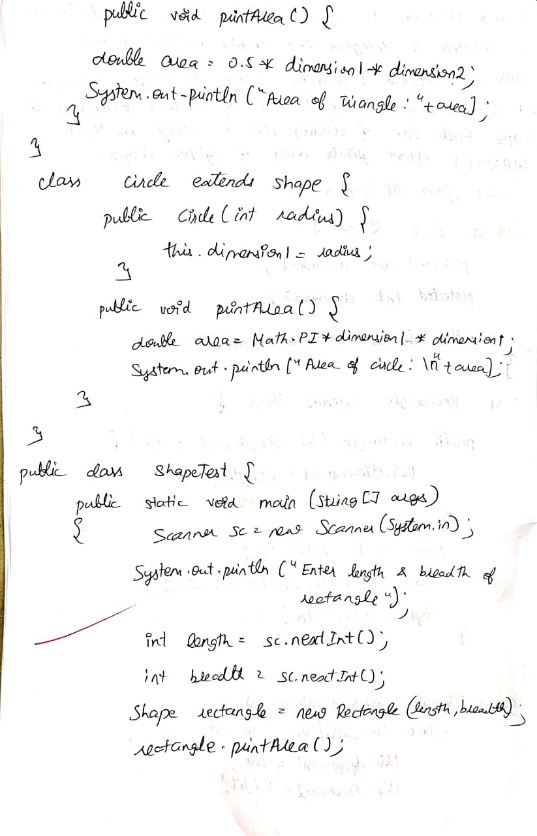 public void printArea() {
double area = 0.5 * dimension1 * dimension2;
System.out.println ("Area of Triangle : "+area];
}
}
class Circle extends shape {
public Circle (int radius) {
this.dimension1 = radius;
}
public void printArea() {
double area = Math.PI * dimension1 * dimension1;
System.out.println ("Area of circle: \n"+area];
}
}
public class ShapeTest {
public static void main (String [] args)
{ Scanner sc = new Scanner (System.in);
System.out.println ("Enter length & breadth of
rectangle");
int length = sc.nextInt();
int breadth = sc.nextInt();
Shape rectangle = new Rectangle (length, breadth);
rectangle.printArea();